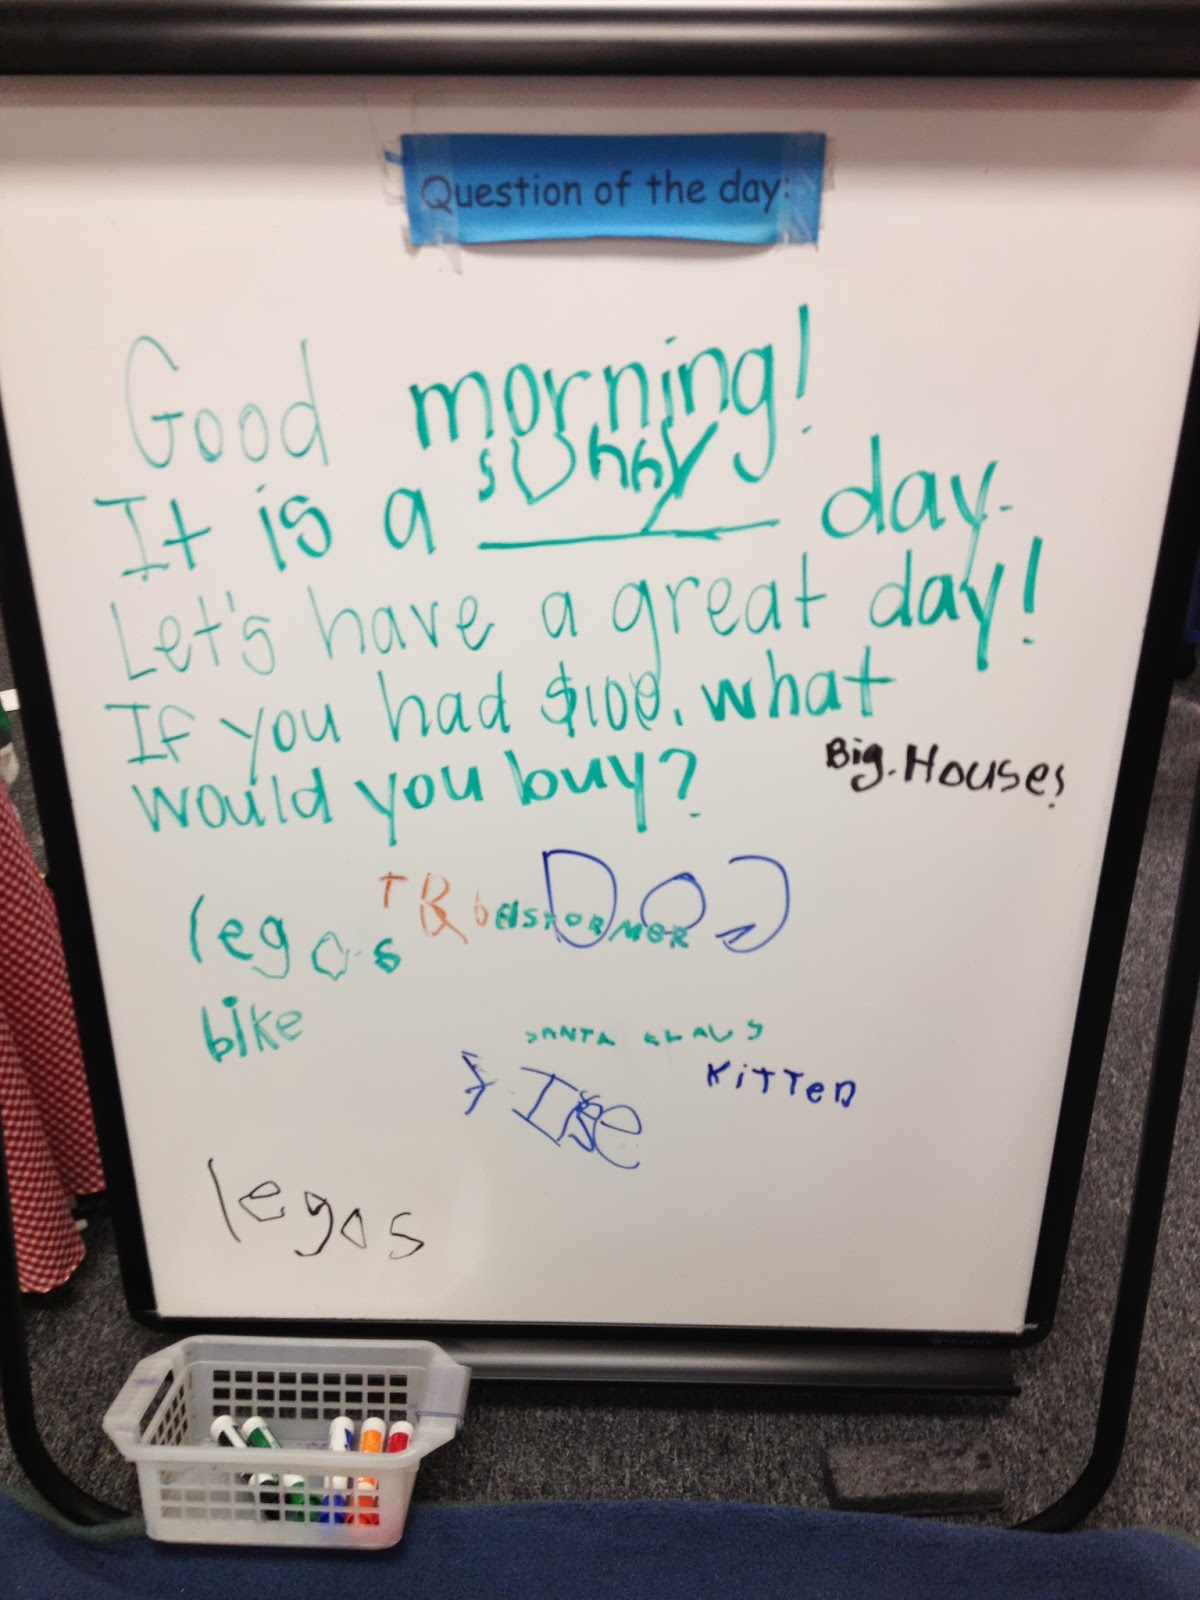 Question of the day:
Good morning!
It is a sunny day.
Let's have a great day!
If you had $100, what
would you buy?
Big. Houses
legos
DOJ
bike
SANTA CLAUS
KiTTEN
legos